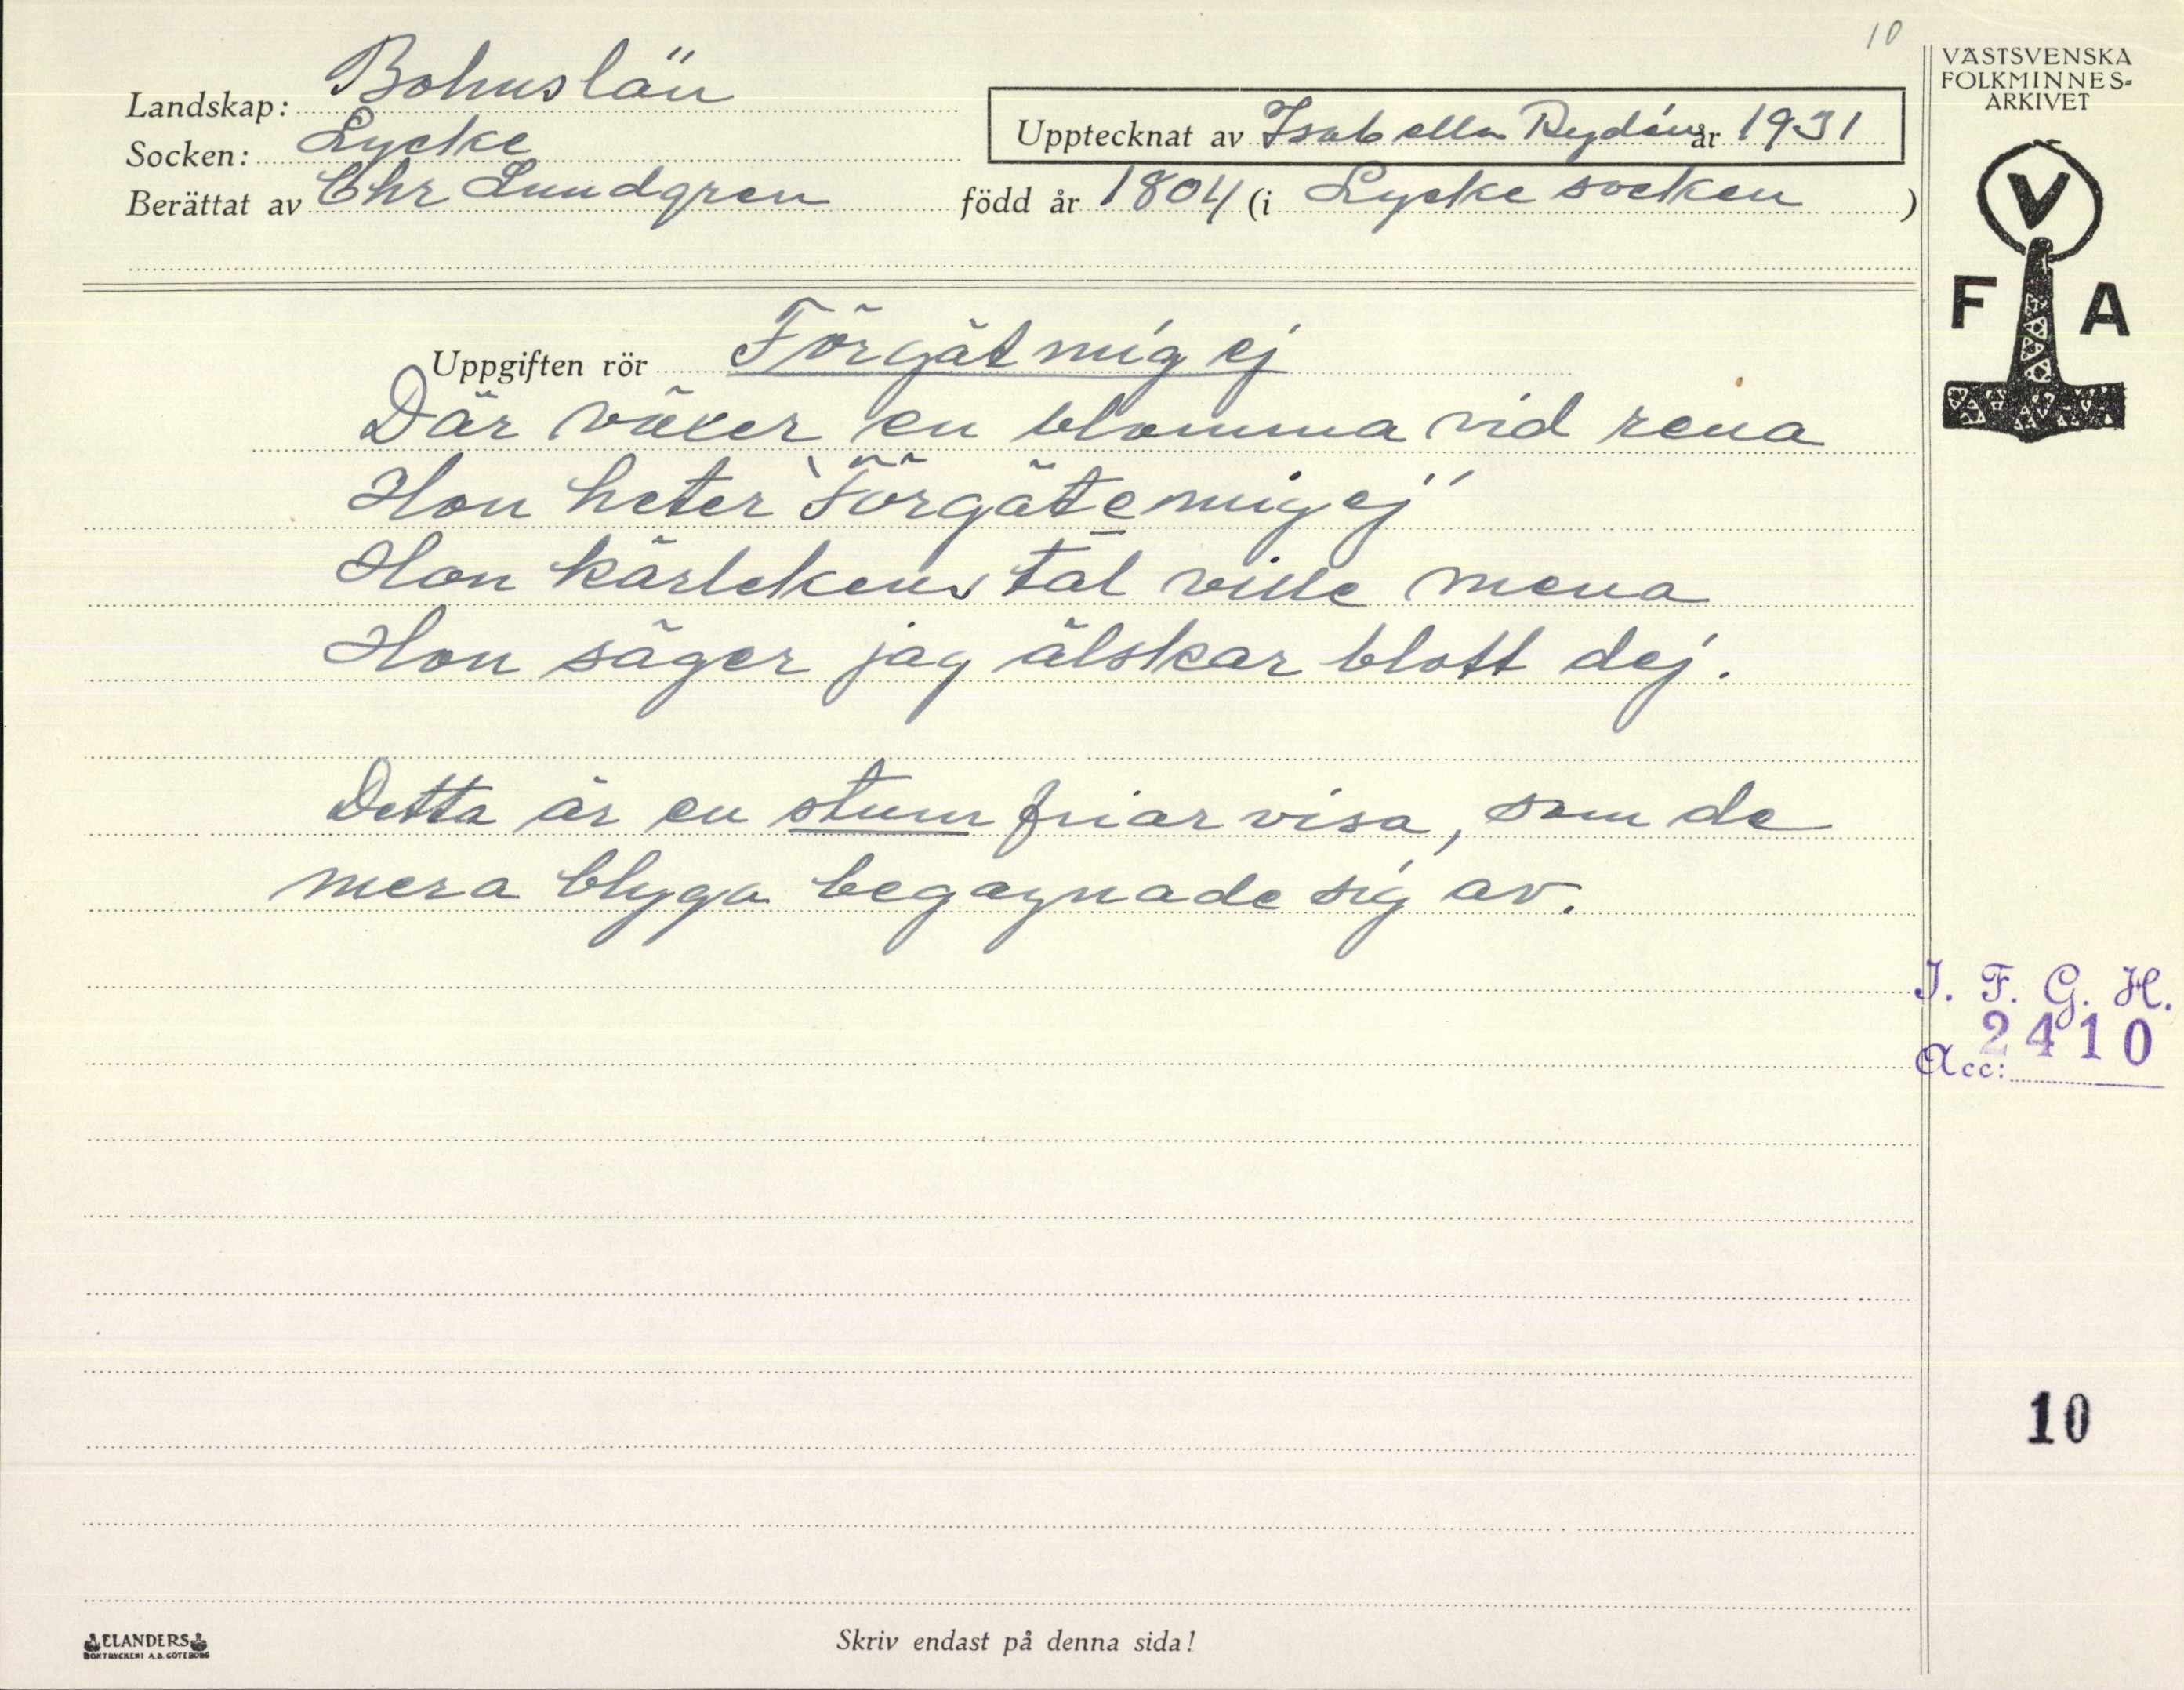 10
VÄSTSVENSKA
FOLKMINNES-
ARKIVET
Landskap: Bohuslän
Upptecknat av Isabella Rydén år 1931
Socken: Lycke
Berättat av Chr Lundgren född år 1804 (i Lycke socken )
V
F A
Uppgiften rör Förgät mig ej
Där växer en blomma vid rena
Hon heter "Förgätemigej"
Hon kärlekens tal ville mena
Hon säger jag älskar blott dej.
Detta är en stum friarvisa, som de
mera blyga begagnade sig av.
I. F. G. H.
2410
Acc:
10
Skriv endast på denna sida!
ELANDERS
BOKTRYCKERI A.B. GÖTEBORG